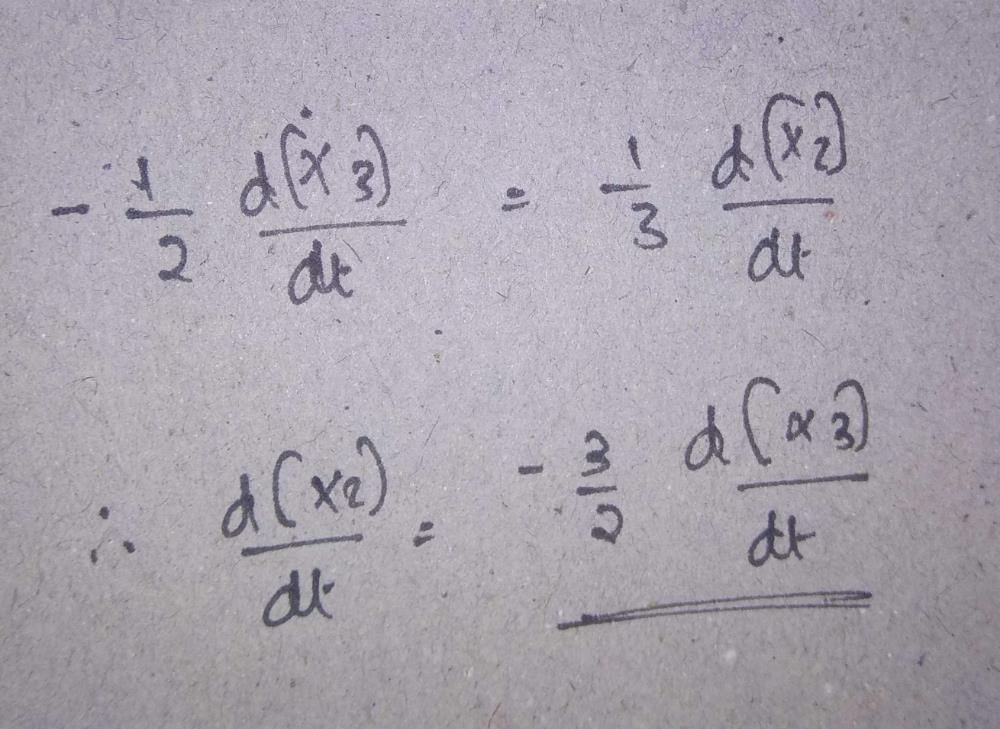 - 1/2 d(x3)/dt = 1/3 d(x2)/dt
∴ d(x2)/dt = - 3/2 d(x3)/dt